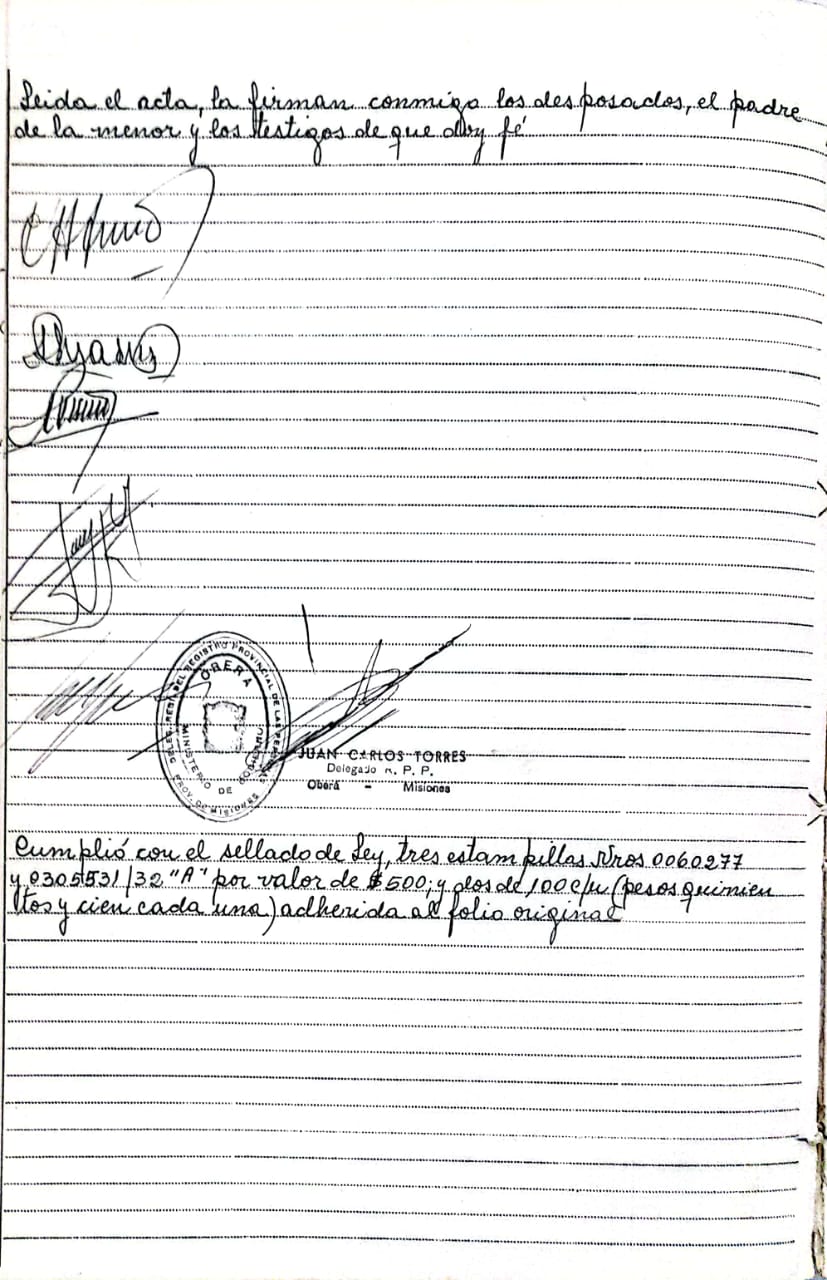 Leida el acta, la firman conmigo los desposados, el padre
de la menor y los testigos de que doy fé
REGISTRO PROVINCIAL DE LAS PERSONAS
OBERÁ
MINISTERIO DE GOBIERNO
PROV. DE MISIONES
JUAN CARLOS TORRES
Delegado R. P. P.
Oberá - Misiones
Cumplió con el sellado de Ley, tres estampillas Nros 0060277
y 0305531/32 "A" por valor de $500; y dos de 100 c/u (pesos quinien
tos y cien cada una) adherida al folio original